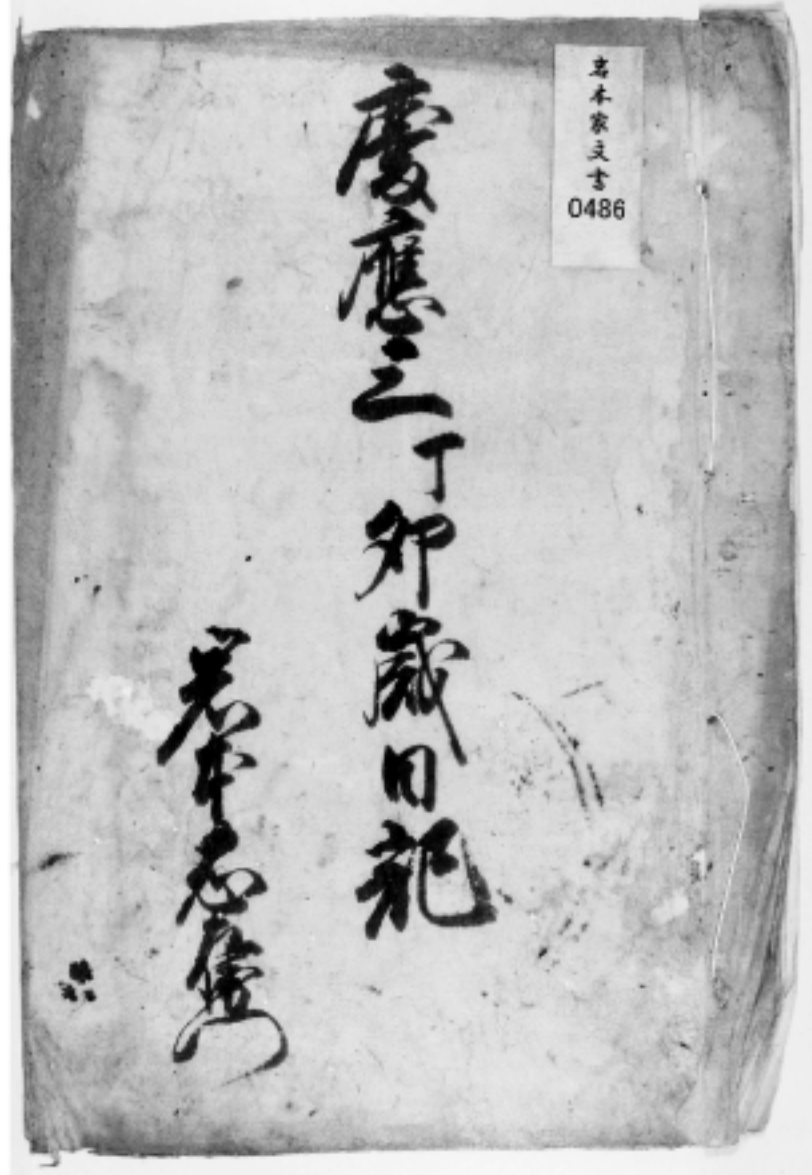 岩本家文書
0486
慶應三丁卯歳日記
岩本志